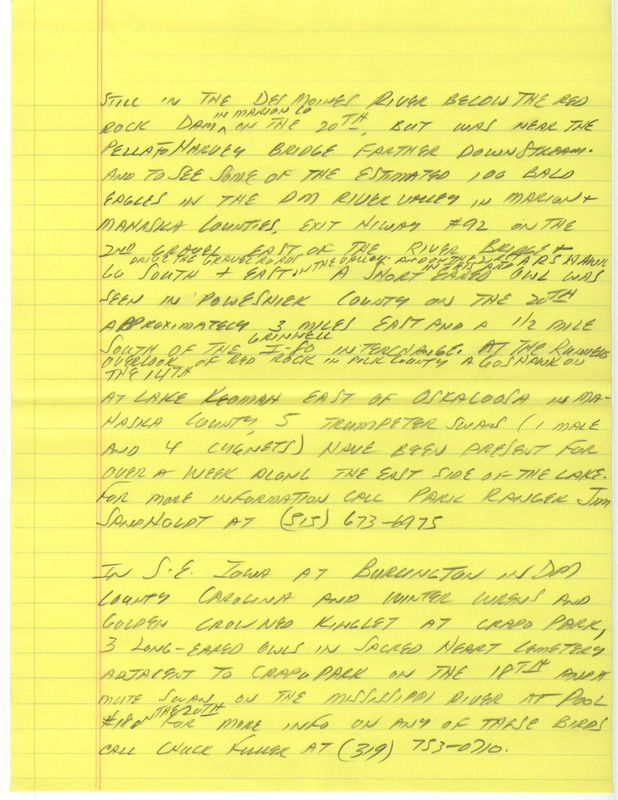 STILL IN THE DES MOINES RIVER BELOW THE RED
IN MARION CO
ROCK DAM ON THE 20TH, BUT WAS NEAR THE
PELLA TO HARVEY BRIDGE FARTHER DOWNSTREAM.
AND TO SEE SOME OF THE ESTIMATED 100 BALD
EAGLES IN THE DM RIVER VALLEY IN MARION +
MAHASKA COUNTIES, EXIT HIWAY #92 ON THE
2ND GRAVEL EAST OF THE RIVER BRIDGE +
DRIVE THE GRAVEL ROADS IN THE VALLEY. AND ON THE 20TH A R.S. HAWK
GO SOUTH + EAST. A SHORT EARED OWL WAS
SEEN IN POWESHIEK COUNTY ON THE 20TH
APPROXIMATELY 3 MILES EAST AND A 1/2 MILE
GRINNELL
SOUTH OF THE I-80 INTERCHANGE. AT THE RUNNELLS
OVERLOOK OF RED ROCK IN POLK COUNTY A GOSHAWK ON
THE 14TH
AT LAKE KEOMAH EAST OF OSKALOOSA IN MA-
HASKA COUNTY, 5 TRUMPETER SWANS (1 MALE
AND 4 CYGNETS) HAVE BEEN PRESENT FOR
OVER A WEEK ALONG THE EAST SIDE OF THE LAKE.
FOR MORE INFORMATION CALL PARK RANGER JIM
SANDHOLDT AT (515) 673-6975
IN S.E. IOWA AT BURLINGTON IN DM
COUNTY CAROLINA AND WINTER WRENS AND
GOLDEN CROWNED KINGLET AT CRAPO PARK,
3 LONG-EARED OWLS IN SACRED HEART CEMETERY
ADJACENT TO CRAPO PARK ON THE 18TH AND A
MUTE SWAN ON THE MISSISSIPPI RIVER AT POOL
#18 ON THE 20TH FOR MORE INFO ON ANY OF THESE BIRDS
CALL CHUCK FULLER AT (319) 753-0710.